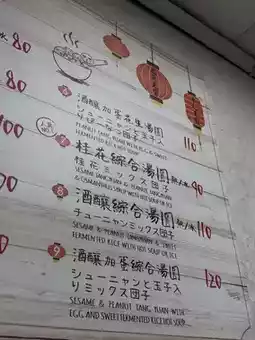 80
酒釀加蛋花生湯圓
110
PEANUT TANG YUAN WITH EGG & SWEET
FERMENTED RICE SOUP
80
100
桂花綜合湯圓 熱/冰 90
桂花ミックス団子
SESAME TANGYUAN & PEANUT TANGYUAN
& OSMANTHUS SYRUP WITH HOT SOUP OR ICE
8
酒釀綜合湯圓 熱/冰 110
チューニャンミックス団子
SESAME & PEANUT TANGYUAN & SWEET
FERMENTED RICE WITH HOT SOUP OR ICE
9
酒釀加蛋綜合湯圓 120
シューニャンと玉子入
りミックス団子
SESAME & PEANUT TANG YUAN WITH
EGG AND SWEET FERMENTED RICE HOT SOUP